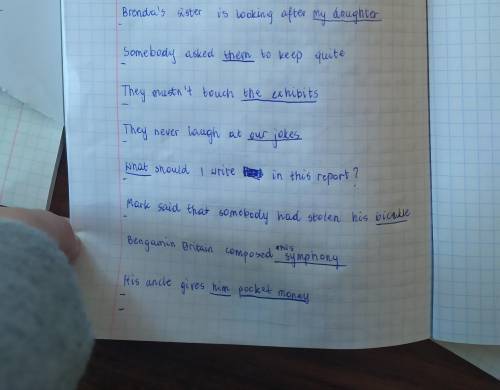 Brenda's sister is looking after my daughter
Somebody asked them to keep quite
They mustn't touch the exhibits
They never laugh at our jokes
What should I write in this report?
Mark said that somebody had stolen his bicycle
Bengamin Britain composed this symphony
His uncle gives him pocket money